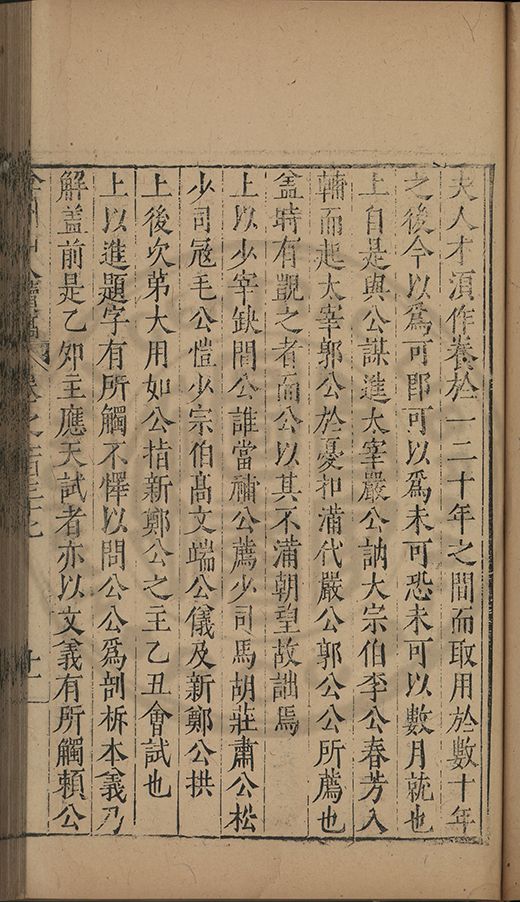 夫人才湏作養於一二十年之間而取用於數十年
之後今以爲可郎可以爲未可恐未可以數月就也
上自是與公謀進太宰嚴公訥大宗伯李公春芳入
輔而起太宰郭公於憂扣滿代嚴公郭公公所薦也
盖時有覬之者而公以其不滿朝望故詘焉
上以少宰缺問公誰當補公薦少司馬胡莊肅公松
少司冦毛公愷少宗伯髙文端公儀及新鄭公拱
上後次第大用如公指新鄭公之主乙丑會試也
上以進題字有所觸不懌以問公公爲剖柝本義乃
解盖前是乙卯主應天試者亦以文義有所觸頼公